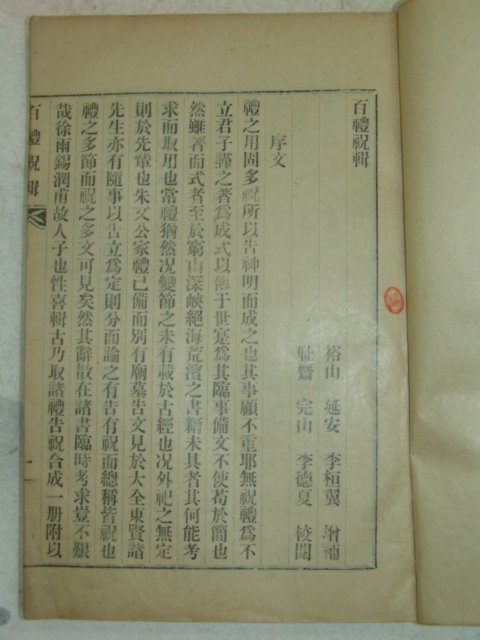 百禮祝輯
裕山 延安 李桓翼 增補
完山 李德夏 校閱
序文
禮之用固多祝所以告神明而成之也其事顧不重耶無祝禮爲不
立君子謹之著爲成式以傳于世寔爲其臨事備文不使苟於簡也
然雖著而式者至於窮山深峽絕海荒濱之書籍未具者其何能考
求而取用也常禮猶然况變節之未有載於古經也况外祀之無定
則於先輩也朱文公家禮已備而別有廟墓告文見於大全東賢諸
先生亦有隨事以告立爲定則分而論之有告有祝而總稱皆祝也
禮之多節而祝之多文可見矣然其辭散在諸書臨時考求豈不艱
哉徐雨錫潤甫故人子也性喜輯古乃取諸禮告祝合成一册附以
百禮祝輯
一